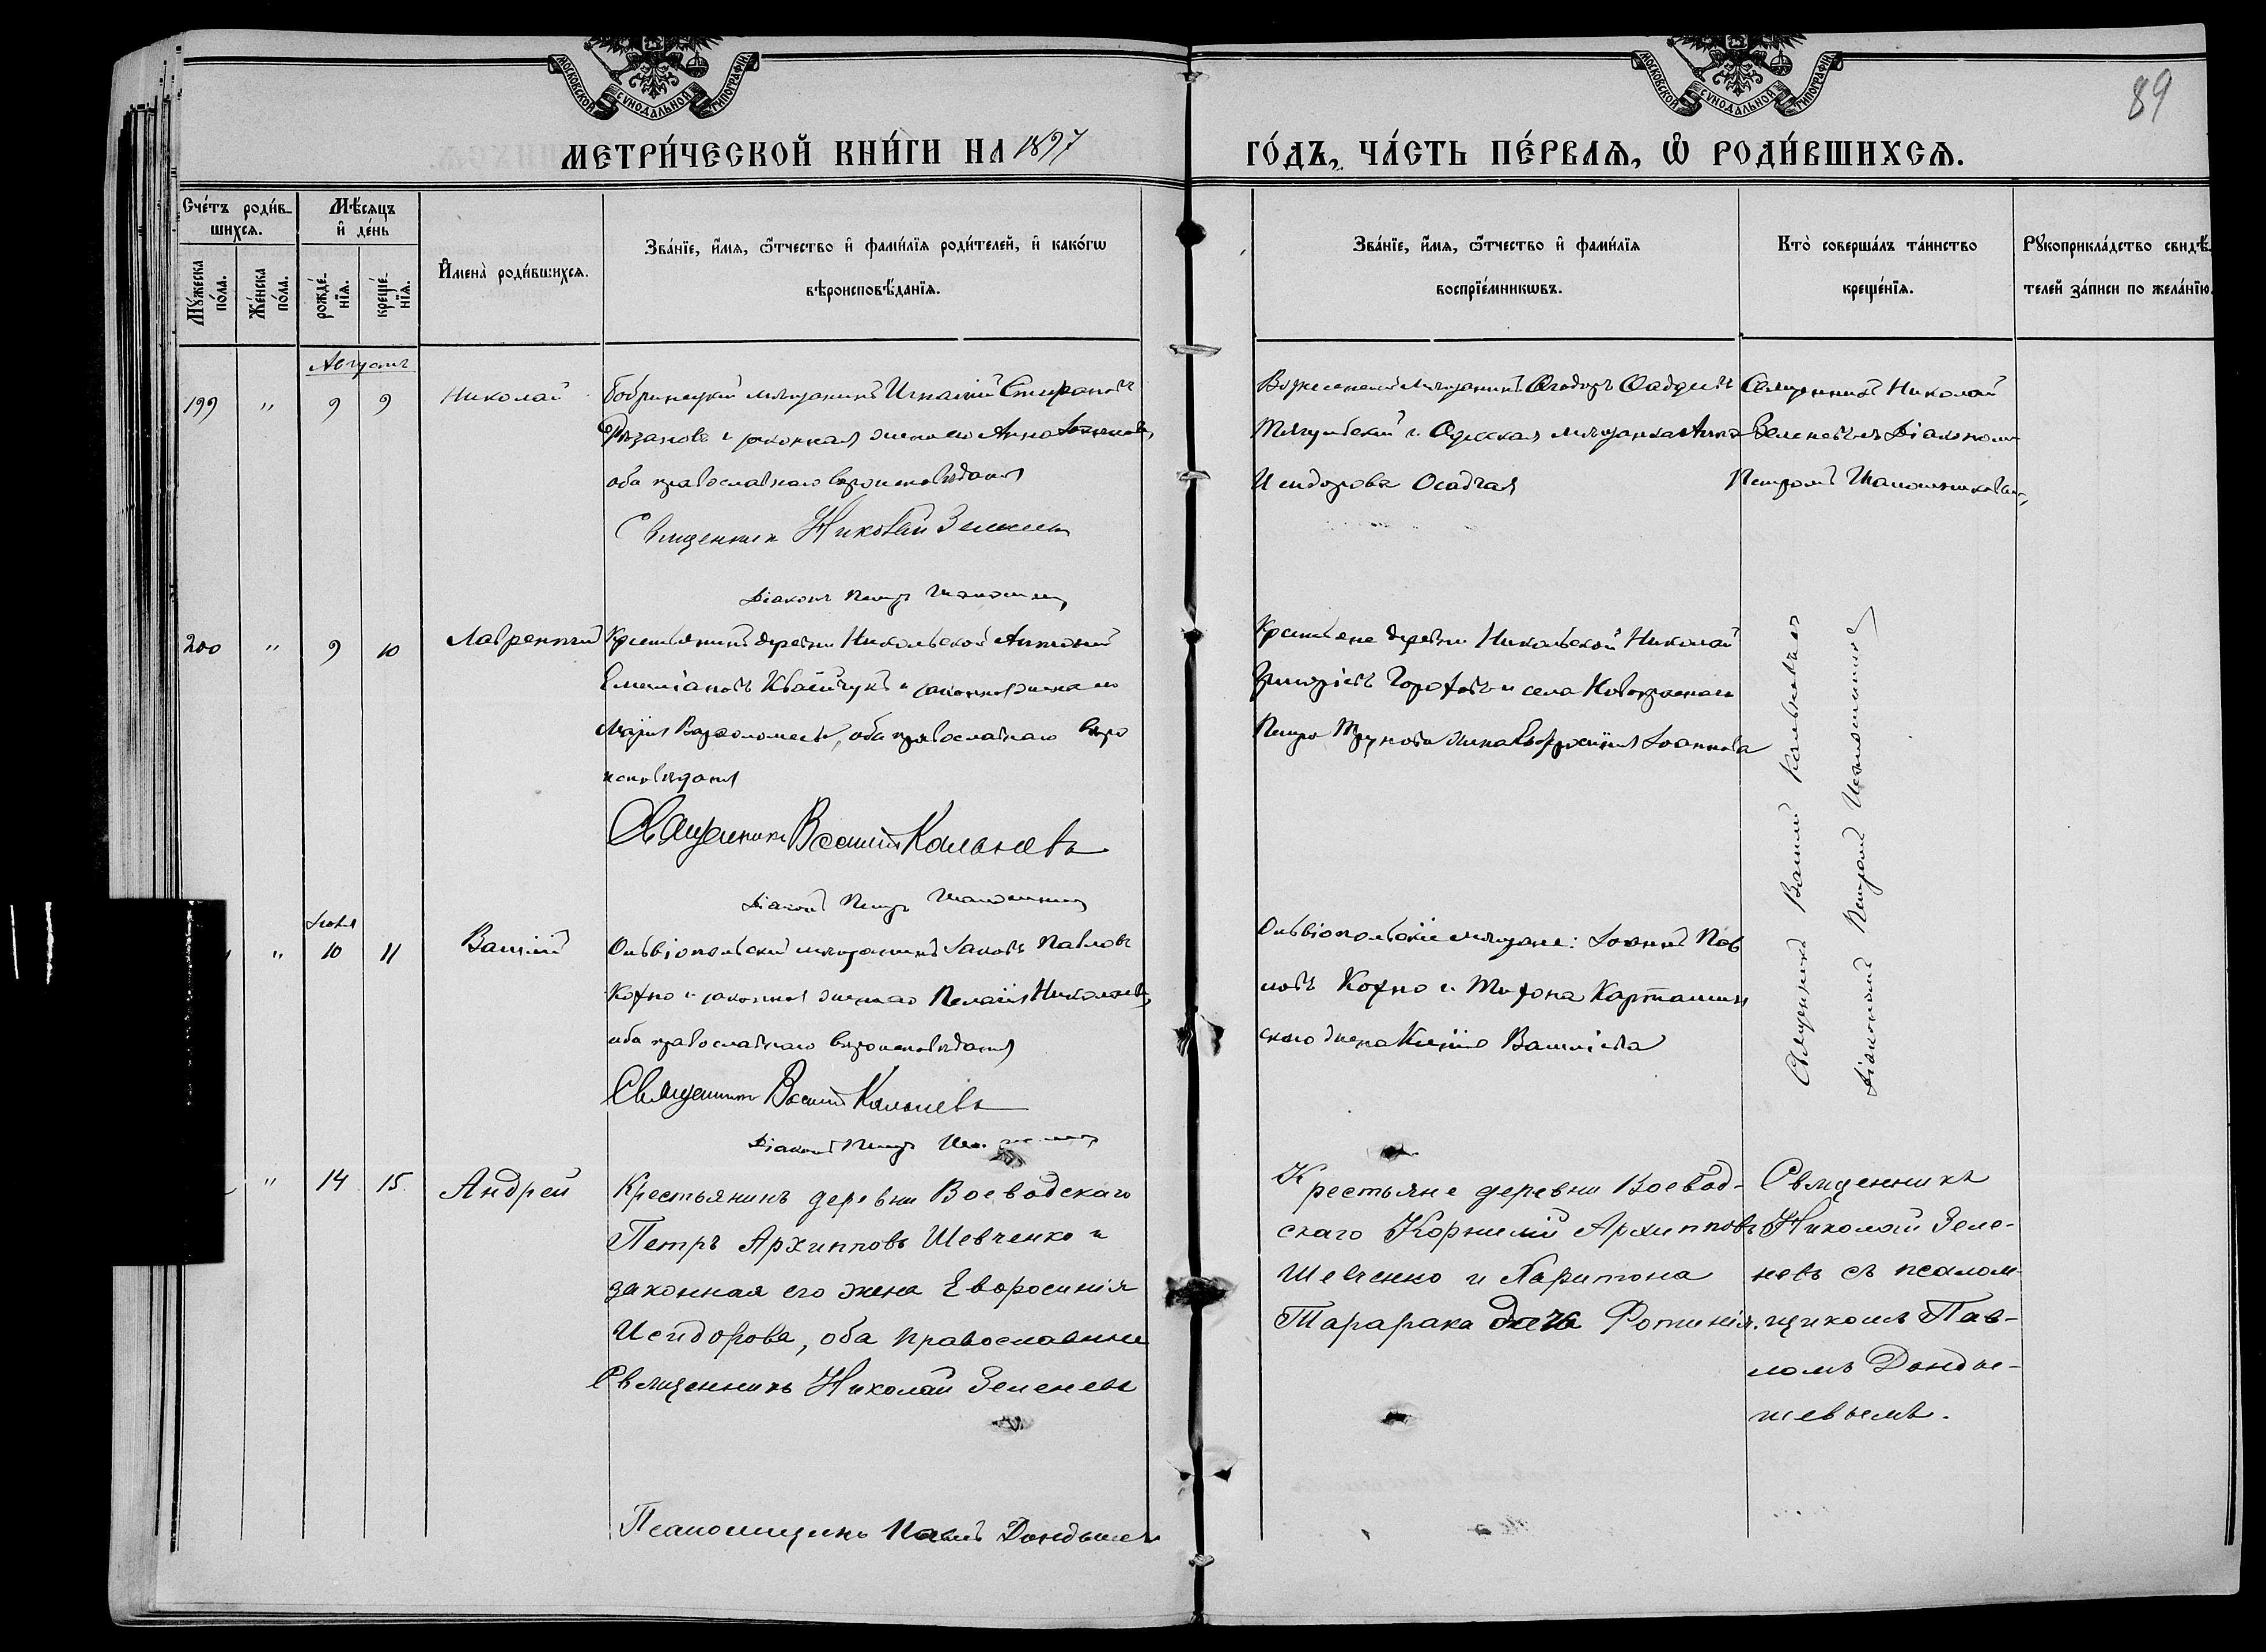 МОСКОВСКОЙ СѴНОДАЛЬНОЙ ТИПОГРАФІИ
МОСКОВСКОЙ СѴНОДАЛЬНОЙ ТИПОГРАФІИ
89
МЕТРИ́ЧЕСКОЙ КНИ́ГИ НА 1897
ГО́ДЪ, ЧА́СТЬ ПЕ́РВАѦ, Ѡ҆ РОДИ́ВШИХСѦ.
Сче́тъ роди́в-
шихсѧ.
Мꙋ́жеска по́ла.
Же́нска по́ла.
Мѣ́сѧцъ
и҆ де́нь
рожде́-
нїѧ.
креще́-
нїѧ.
И҆мена̀ роди́вшихсѧ.
Зва́нїе, и҆́мѧ, ѻ҆́тчество и҆ фами́лїѧ роди́телей, и҆ како́гѡ
вѣроисповѣ́данїѧ.
Зва́нїе, и҆́мѧ, ѻ҆́тчество и҆ фами́лїѧ
воспрїе́мникѡвъ.
Кто̀ соверша́лъ та́инство
креще́нїѧ.
Рꙋкоприкла́дство свидѣ́-
телей за́писи по жела́нїю.
Августъ
199 " 9 9 Николай
Бобринецкій мѣщанинъ Игнатій Стефановъ
и законная жена его Анна
оба православнаго вѣроисповѣданія
Священникъ Николай Зеленевъ
Діаконъ Петръ
мѣщанинъ Ѳеодоръ
и Одесская мѣщанка Анна
Исидорова Осадчая
Священникъ Николай
Зеленевъ съ Діакономъ
Петромъ
200 " 9 10 Лаврентій
Крестьянинъ деревни Никольской Антоній
Емеліановъ Квайчукъ и законная жена его
Марія Варѳоломеева, оба православнаго вѣро
исповѣданія
Священникъ Василій Кальневъ
Діаконъ Петръ
Крестьяне деревни Никольской Николай
Григоріевъ Гороховъ и села Новокрасного
Петра жена Евфросинія Іоаннова
Священникъ Василій Кальневъ съ
діакономъ Петромъ
" 10 11 Василій
Ольвіопольскій мѣщанинъ Іаковъ Павловъ
Кохно и законная жена его Пелагія Николаева,
оба православнаго вѣроисповѣданія
Священникъ Василій Кальневъ
Діаконъ Петръ
Ольвіопольскіе мѣщане: Іоаннъ Пав
ловъ Кохно и Тихона Карташин
скаго жена Ксенія Василіева
" 14 15 Андрей
Крестьянинъ деревни Воеводскаго
Петръ Архипповъ Шевченко и
законная его жена Евфросинія
Исидорова, оба православные
Священникъ Николай Зеленевъ
Псаломщикъ Павелъ
Крестьяне деревни Воевод-
скаго Корнилій Архипповъ
Шевченко и Харитона
Тарарака дочь Фотинія.
Священникъ
Николай Зеле-
невъ съ псалом-
щикомъ Пав-
ломъ Донды-
шевымъ.